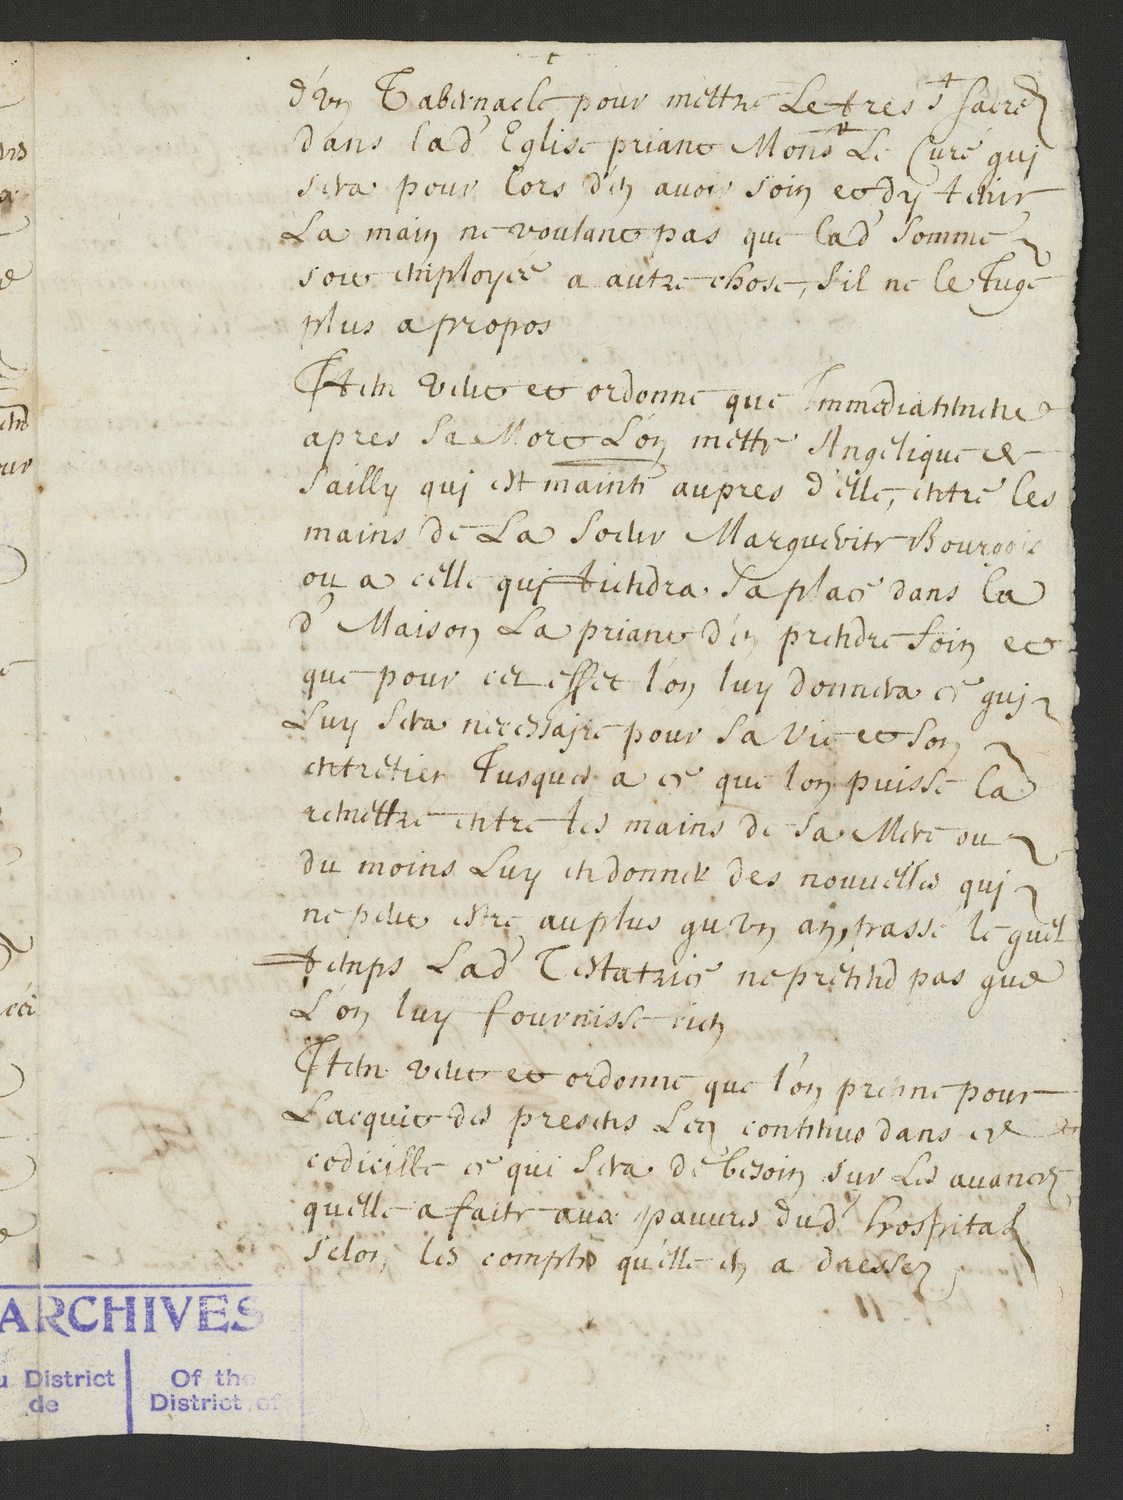 d'un Tabernacle pour mettre Le tres st sacre
dans lad' Eglise priant Monsr Le Curé qui
sera pour lors d'en avoir soin et dy tenir
La main ne voulant pas que lad' somme
soit employée a autre chose, s'il ne le Juge
plus a propos
Item veut et ordonne que Immediatement
apres sa Mort L'on mette Angelique de
Sailly qui est maint aupres d'elle, entre les
mains de La soeur Marguerite Bourgois
ou a celle qui tiendra sa place dans la
d' Maison La priant d'en prendre soin et
que pour cet effet l'on luy donnera ce qui
Luy sera necessaire pour sa vie et son
entretien Jusques a ce que lon puisse la
remettre entre les mains de sa Mere ou
du moins Luy en donner des nouvelles qui
ne peut estre au plus qu'un an, passé le quel
temps Lad' Testatrice ne pretend pas que
L'on luy fournisse rien
Item veut et ordonne que l'on prenne pour
Lacquit des presens Leg contenus dans ce
codicille ce qui sera de besoin sur Les avances
quelle a faite aux pauvres dud' hospital
selon les comptes qu'elle en a dressez
ARCHIVES
District
de
Of the
District of